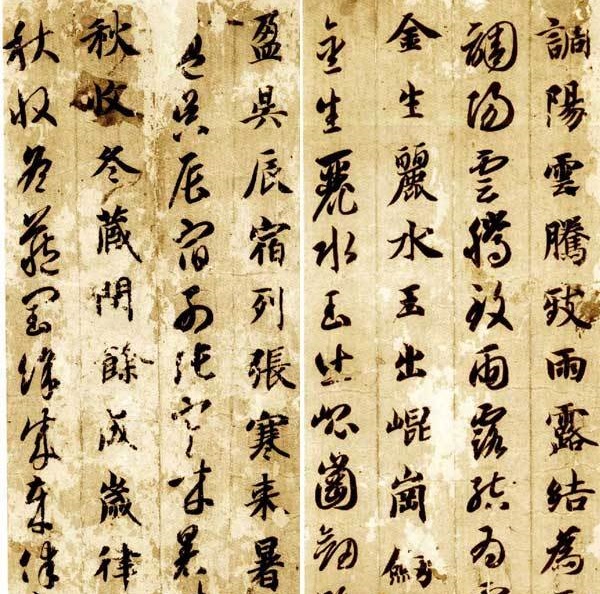 調陽雲騰致雨露結為
調陽雲騰致雨露結為
金生麗水玉出崐崗
金生麗水玉出崐崗劔
盈昃辰宿列張寒来暑
盈昃辰宿列張寒来暑
秋收冬藏閏餘成歲律
秋收冬藏閏餘成歲律